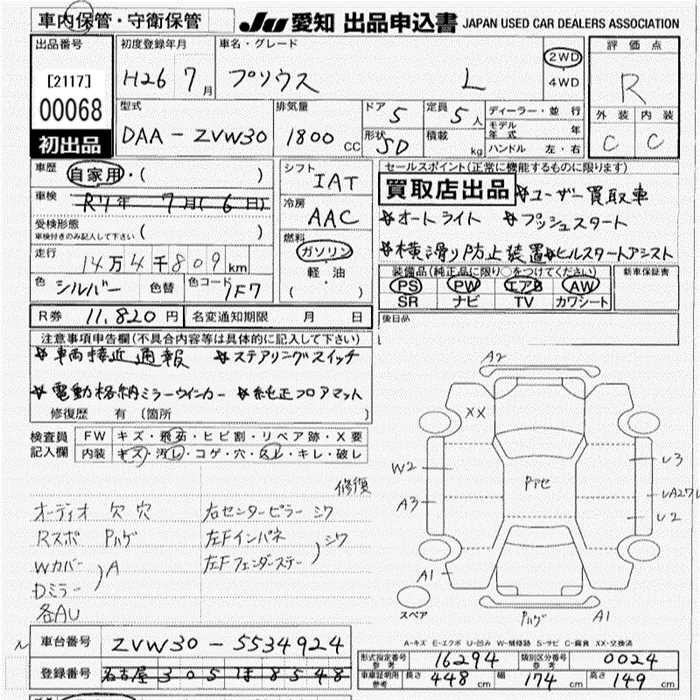 車内保管・守衛保管
JU 愛知 出品申込書 JAPAN USED CAR DEALERS ASSOCIATION
出品番号
[2117]
00068
初出品
初度登録年月
H26 7月
車名・グレード
プリウス L
2WD
・4WD
評価点
R
外装 内装
C C
型式
DAA-ZVW30
排気量
1800 CC
ドア 5
定員 5人
形状 5D
積載 kg
ディーラー・並行
モデル年式 年
ハンドル 左・右
車歴
自家用・( )
車検
R4年 7月(6日)
受検形態
車検付きのみ記入して下さい ( )
走行
14万4千809km
色 シルバー 色替 色コード 1F7
シフト
IAT
冷房
AAC
燃料
ガソリン
軽・油
( )
セールスポイント(正常に機能するものに限ります)
買取店出品 ユーザー買取車
オートライト プッシュスタート
横滑り防止装置 ヒルスタートアシスト
装備品(純正品に限り○をつけてください)
PS PW エアB AW
SR ナビ TV カワシート
新車保証書
後日品
R券 11,820円 名変通知期限 月 日
注意事項申告欄(不具合内容等は具体的に記入して下さい)
車両接近通報 ステアリングスイッチ
電動格納ミラーウインカー 純正フロアマット
修復歴 有 (箇所 )
検査員記入欄
FW キズ・飛石・ヒビ割・リペア跡・X要
内装 キズ・汚れ・コゲ・穴・スレ・キレ・破レ
修復
オーディオ欠穴 右センターピラーシワ
Rスポ Pハゲ 左Fインパネ
Wカバー 左Fフェンダーステー シワ
Dミラー A
各AU
A2
XX
W2
A3
Pアセ
U3
UA27
U2
A1
スペア
Pハゲ
A1
A-キズ E-エクボ U-凹み W-補修跡 S-サビ C-腐食 XX-交換済
車台番号 ZVW30-5534924
登録番号 名古屋 305 ほ 8548
形式指定番号 参考 16294 類別区分番号 参考 0024
車庫証明用 参考 長さ 448cm 幅 174cm 高さ 149cm